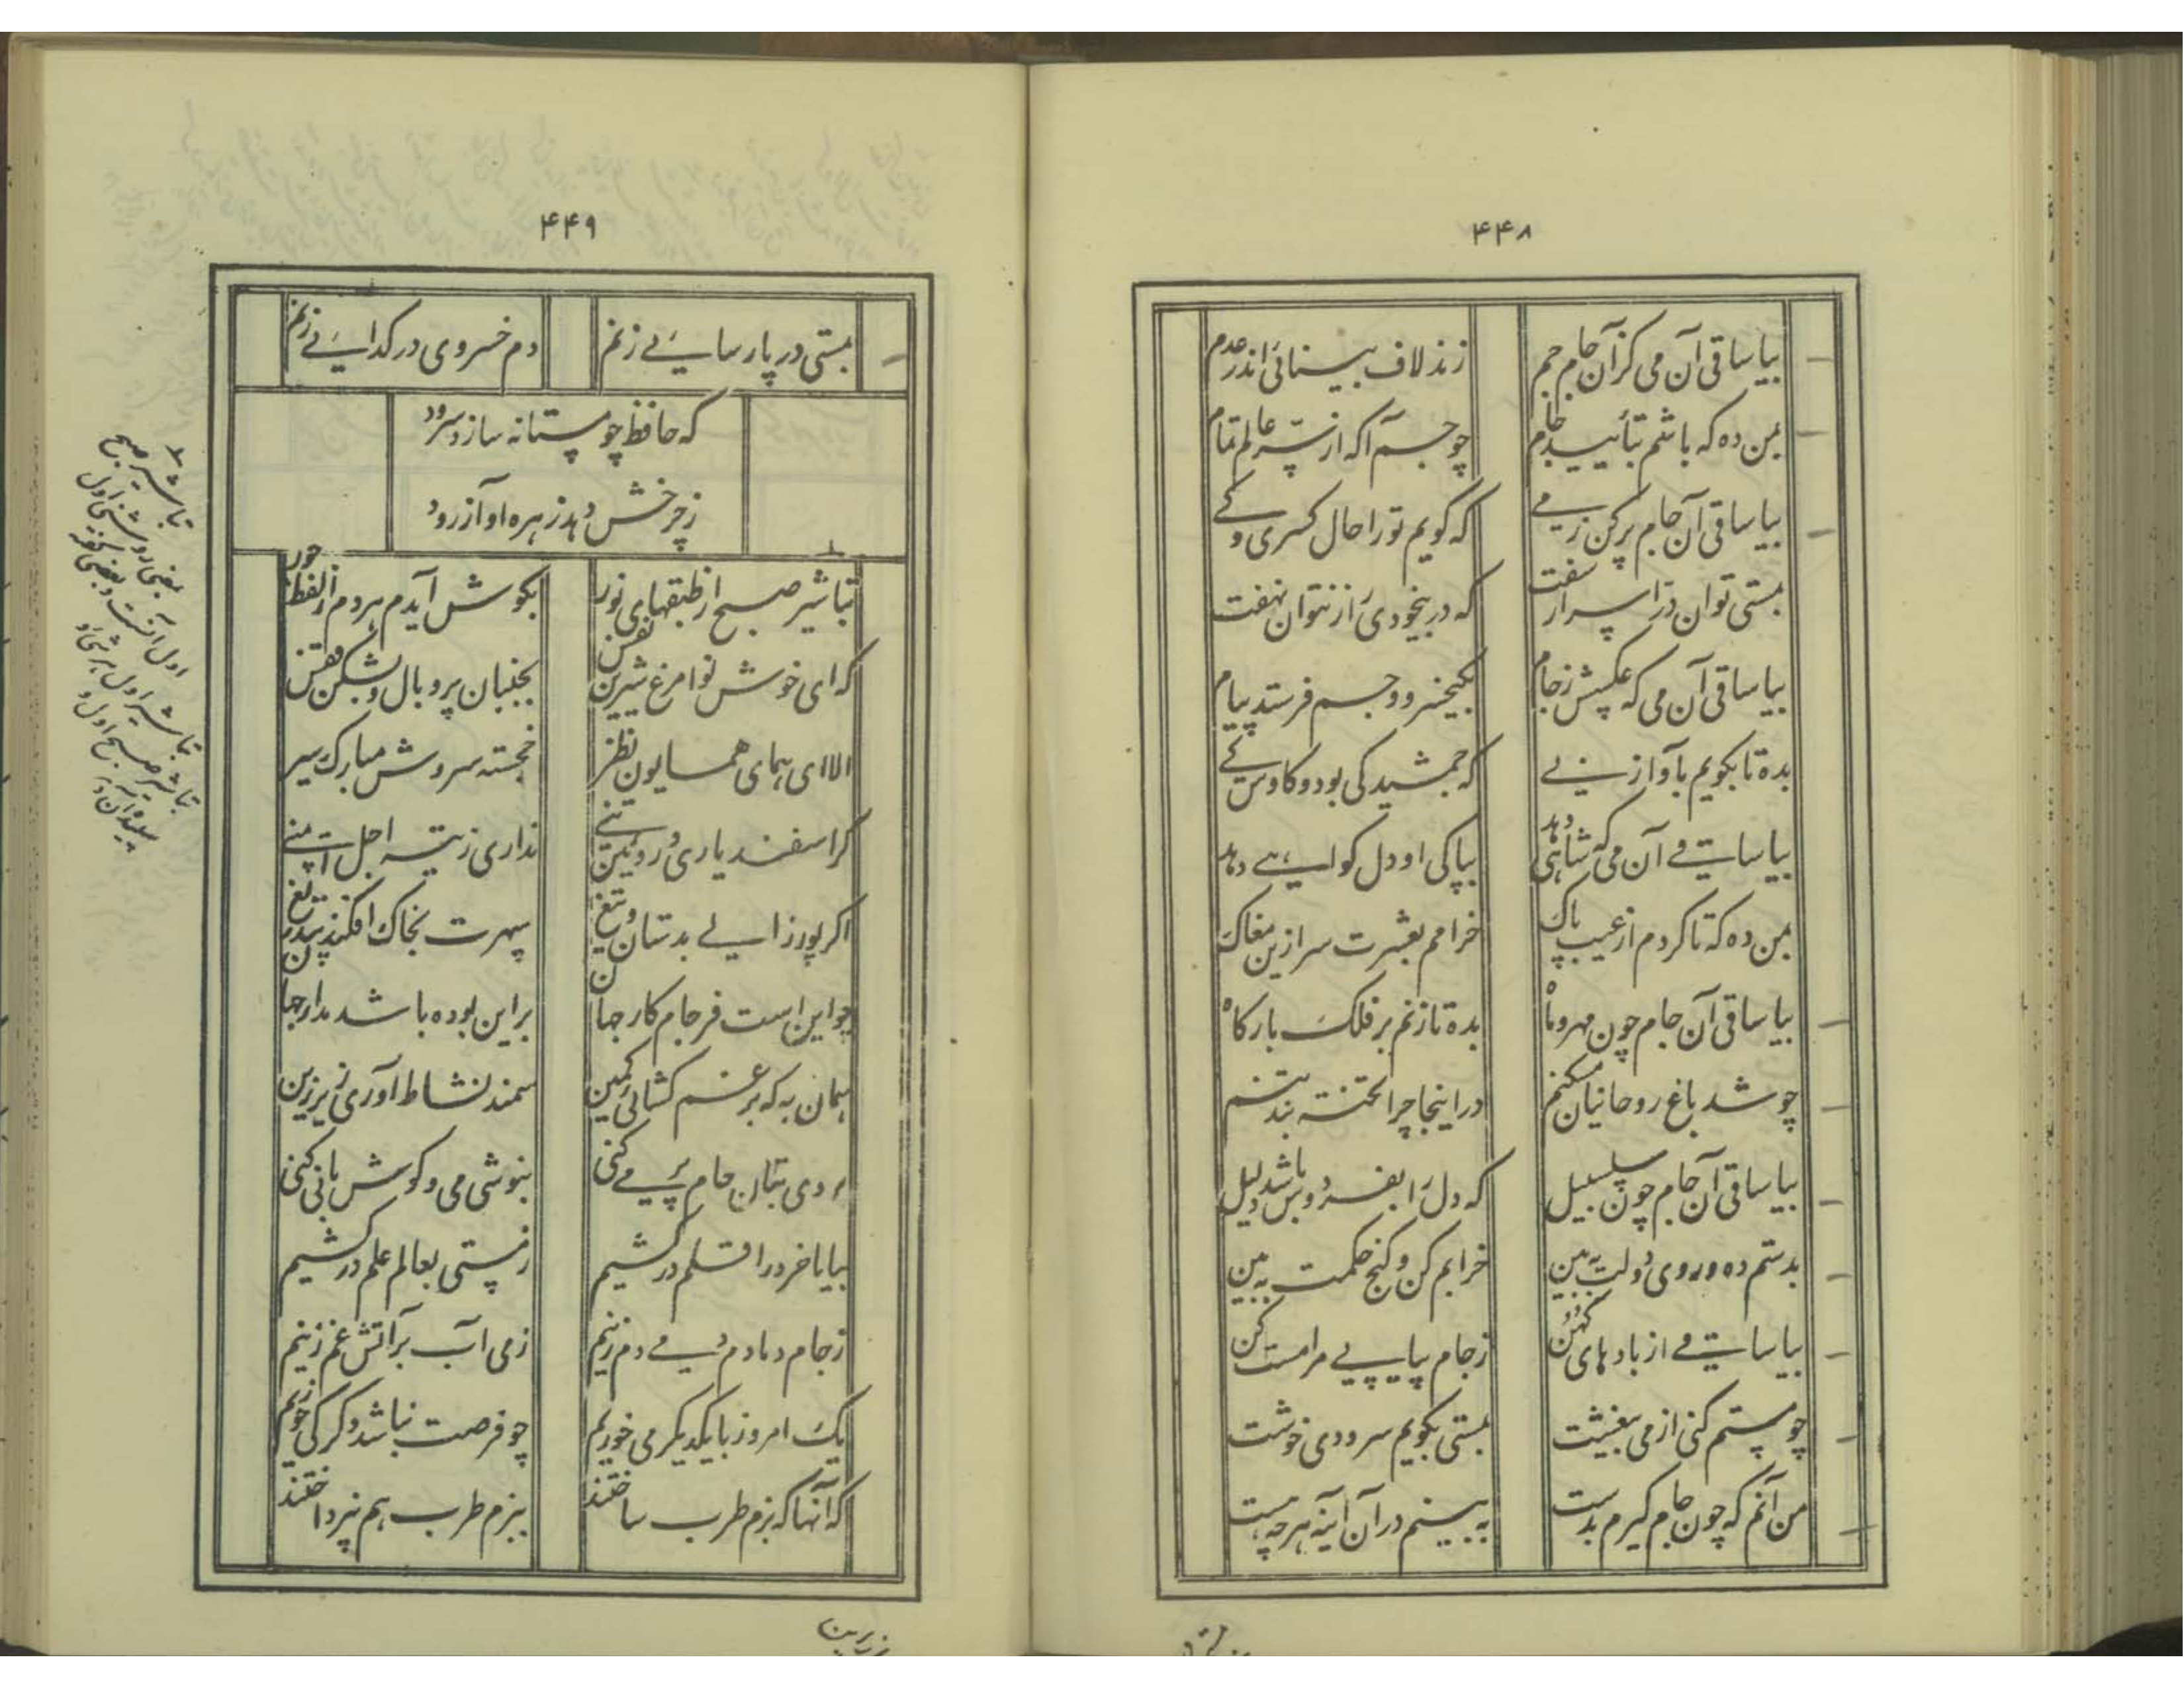 ۴۴۸
بیا ساقی آن می کزان جام جم
زند لاف بینائی اندر عدم
بمن ده که باشم بتأیید جام
چو جم آکه از سرّ عالم تمام
بیا ساقی آن جام پر کن ز می
که کویم تو را حال کسری و کی
بمستی توان درّ اسرار سفت
که در بیخودی راز نتوان نهفت
بیا ساقی آن می که عکسش ز جام
بکیخسرو و جم فرستد پیام
بده تا بکویم بآواز نی
که جمشید کی بود و کاوس کی
بیا ساقی آن می که شاهی دهد
بپاکی او دل کواهی دهد
بمن ده که تا کردم از عیب پاک
خرامم بعشرت سر ازین مغاک
بیا ساقی آن جام چون مهر و ماه
بده تا زنم بر فلک بارکاه
چو شد باغ روحانیان مسکنم
در اینجا چرا تخته بند تنم
بیا ساقی آن جام چون سلسبیل
که دل را بفردوس باشد دلیل
بدستم ده و روی دولت به بین
خرابم کن و کنج حکمت به بین
بیا ساقی از بادهای کهن
ز جام پیاپی مرا مست کن
چو مستم کنی از می بیغشت
بمستی بکویم سرودی خوشت
من آنم که چون جام کیرم بدست
به بینم در آن آینه هر چه هست
۴۴۹
بمستی در پارسائی زنم
دم خسروی در کدائی زنم
که حافظ چو مستانه سازد سرود
ز چرخش دهد زهره آواز رود
تباشیر صبح از طبقهای نور
بکوش آیدم هر دم از لفظ حور
که ای خوش نوا مرغ شیرین نفس
بجنبان پر و بال و بشکن قفس
الا ای همای همایون نظر
خجسته سروش مبارک سیر
کر اسفندیاری و روئین تنی
نداری ز تیر اجل ایمنی
اکر پور زالی بدستان و تیغ
سپهرت بخاک افکند بیدریغ
چو این است فرجام کار جهان
بر این بوده باشد مدار جهان
همان به که بر غم کشائی کمین
سمند نشاط آوری زیر زین
بروی بتان جام پر می کنی
بنوشی می و کوش با نی کنی
بیا تا خرد را قلم در کشیم
ز مستی بعالم علم در کشیم
ز جام دمادم دمی دم زنیم
ز می آب بر آتش غم زنیم
یک امروز با یکدیکر می خوریم
چو فرصت نباشد دکر کی خوریم
که آنها که بزم طرب ساختند
ببزم طرب هم نپرداختند
تباشیر صبح